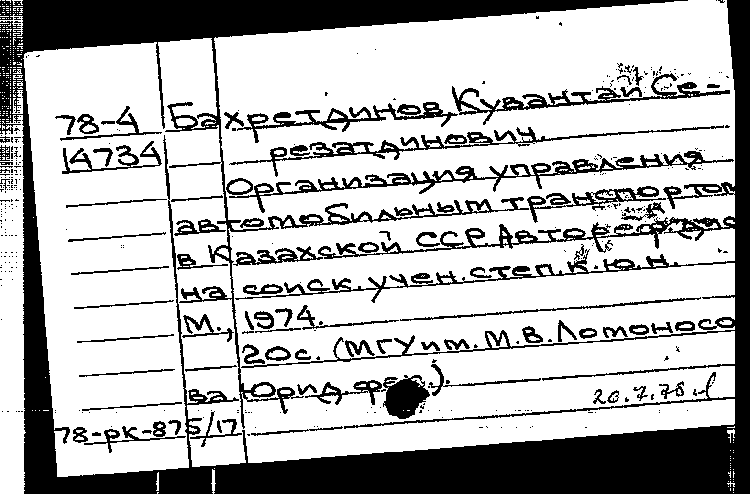 78-4 Бахретдинов, Кувантай Се-
14734 резатдинович.
Организация управления
автомобильным транспортом
в Казахской ССР Автореф. дис
на соиск. учен. степ. к. ю. н.
М., 1974.
20с. (МГУ им. М. В. Ломоносо
ва. Юрид. фак.).
20.7.78.
78-рк-875/17